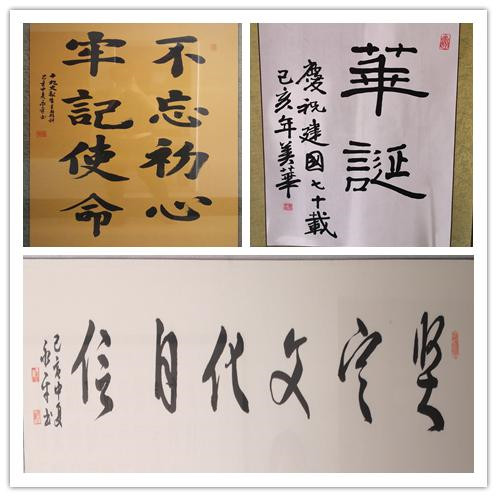 不忘初心
牢記使命
華誕
慶祝建國七十載
己亥年美華
坚定文化自信
己亥中夏